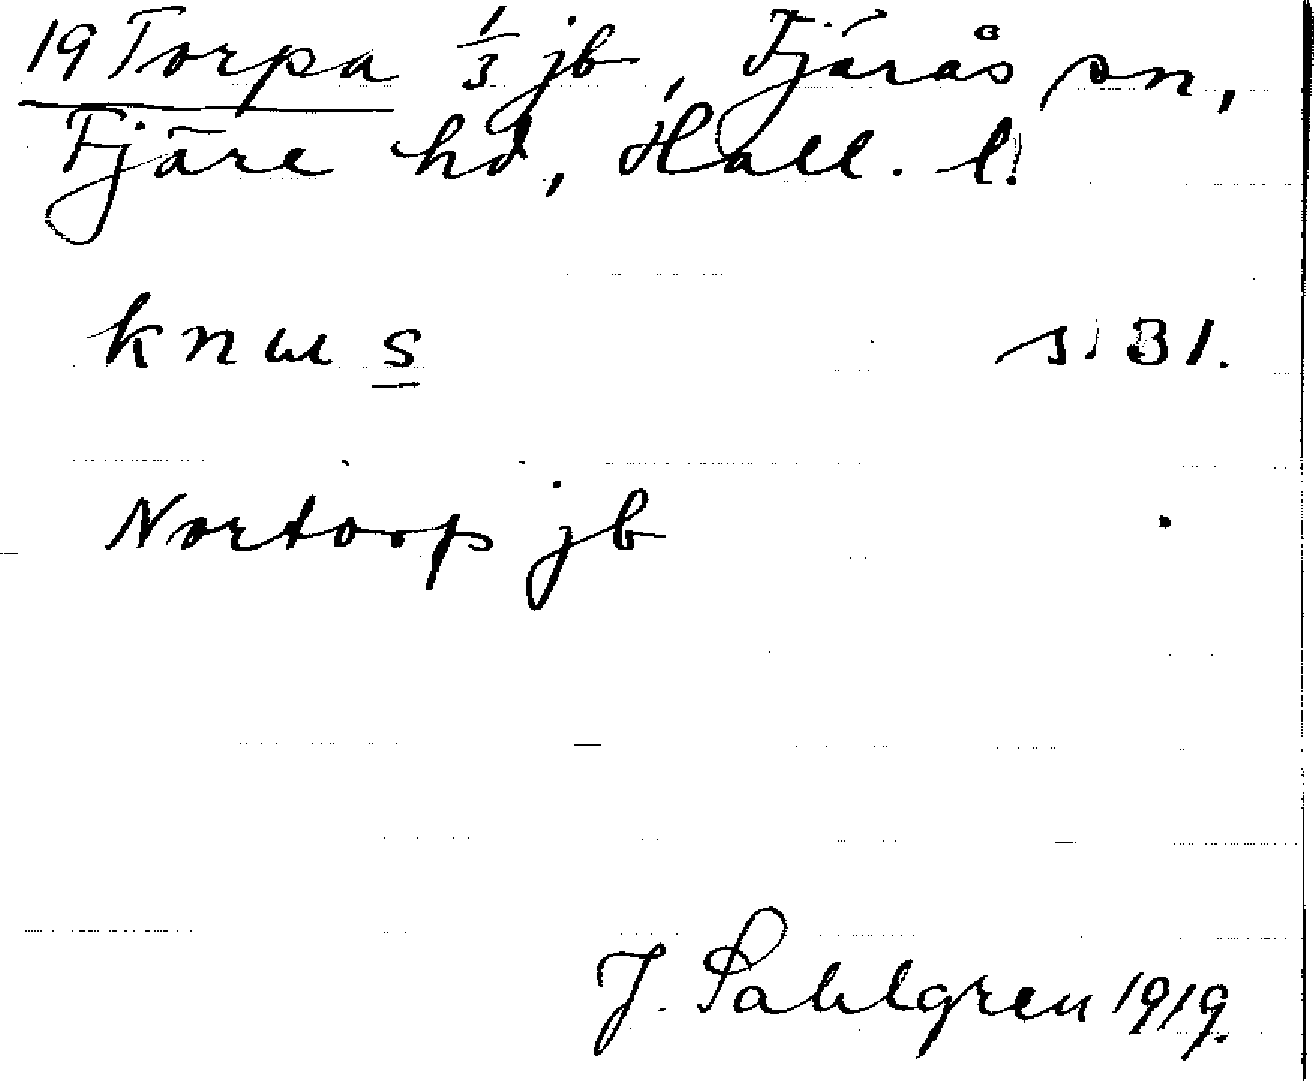 19 Torpa 1/3 jb, Fjärås sn,
Fjäre hd, Hall. l.
knus s. 31.
Nortorp jb
J. Sahlgren 1919.